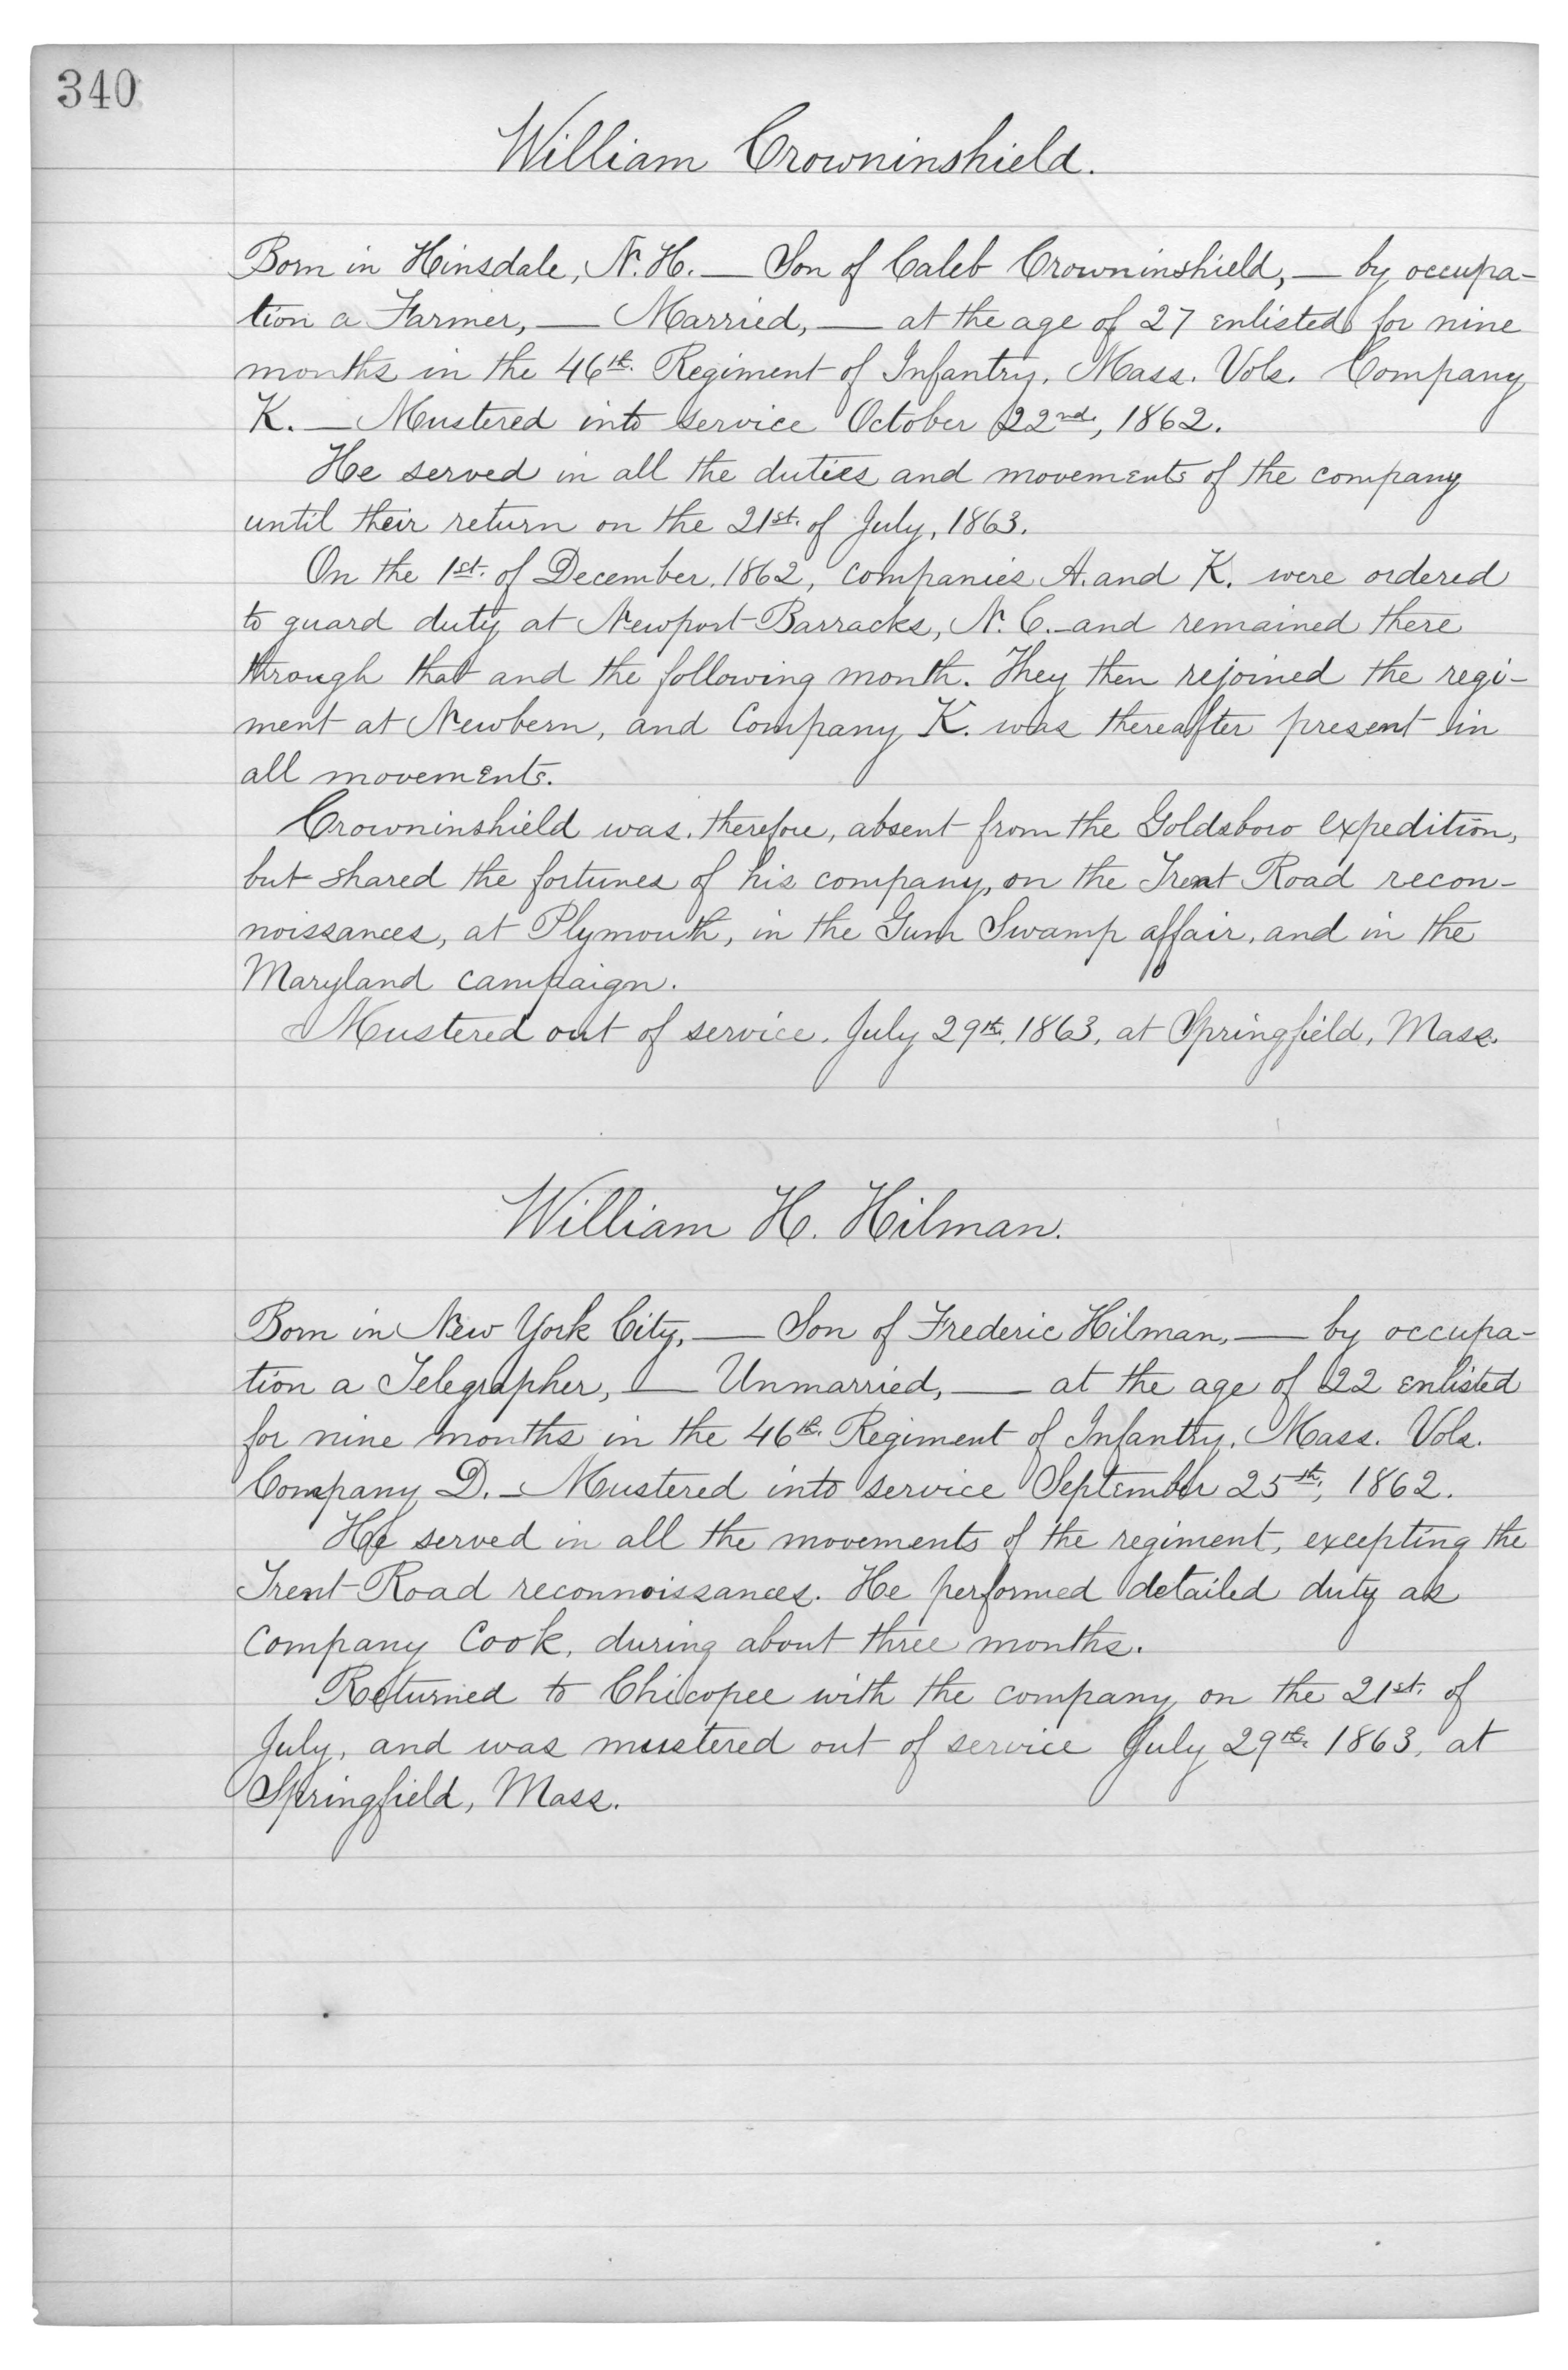 340
William Crowninshield.
Born in Hinsdale, N.H. — Son of Caleb Crowninshield, — by occupa-
tion a Farmer, — Married, — at the age of 27 enlisted for nine
months in the 46th. Regiment of Infantry, Mass. Vols. Company
K. — Mustered into service October 22nd, 1862.
He served in all the duties and movements of the company
until their return on the 21st. of July, 1863.
On the 1st. of December, 1862, companies A. and K. were ordered
to guard duty at Newport Barracks, N.C. and remained there
through that and the following month. They then rejoined the regi-
ment at Newbern, and Company K. was thereafter present in
all movements.
Crowninshield was, therefore, absent from the Goldsboro expedition,
but shared the fortunes of his company, on the Trent Road recon-
noissances, at Plymouth, in the Gum Swamp affair, and in the
Maryland campaign.
Mustered out of service, July 29th, 1863, at Springfield, Mass.
William H. Hilman.
Born in New York City, — Son of Frederic Hilman, — by occupa-
tion a Telegrapher, — Unmarried, — at the age of 22 enlisted
for nine months in the 46th. Regiment of Infantry, Mass. Vols.
Company D. — Mustered into service September 25th, 1862.
He served in all the movements of the regiment, excepting the
Trent Road reconnoissances. He performed detailed duty as
Company Cook, during about three months.
Returned to Chicopee with the company on the 21st. of
July, and was mustered out of service July 29th. 1863, at
Springfield, Mass.